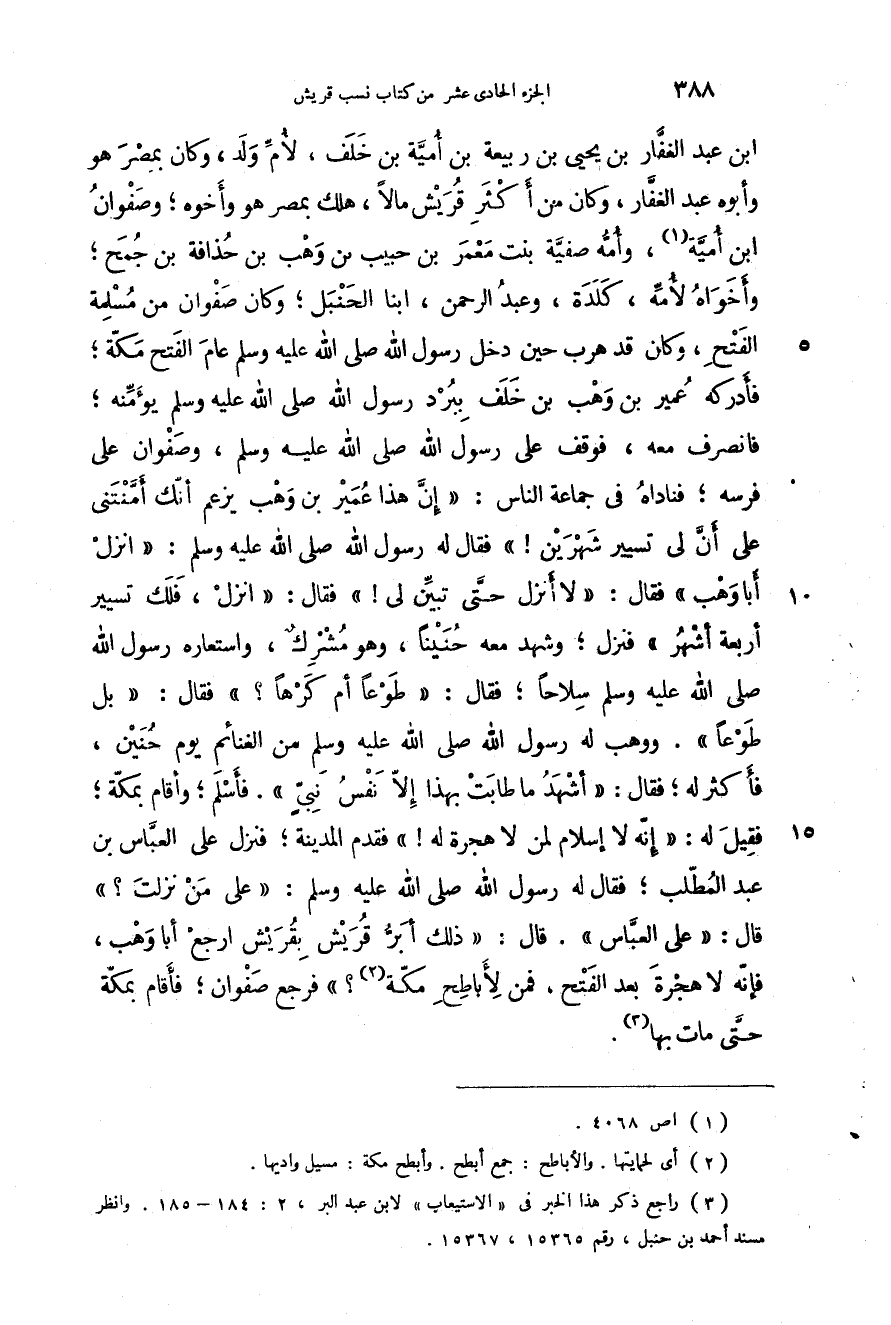 ٣٨٨ الجزء الحادى عشر من كتاب نسب قريش
ابن عبد الغفَّار بن يحيى بن ربيعة بن أُميَّة بن خَلَف ، لأُمِّ وَلَد ، وكان بمِصْرَ هو
وأبوه عبد الغفَّار ، وكان من أَكْثَرِ قُرَيْش مالاً ، هلك بمصر هو وأَخوه ؛ وصَفْوانُ
ابن أُميَّة(١) ، وأُمُّه صفيَّة بنت مَعْمَرَ بن حبيب بن وَهْب بن حُذافة بن جُمَح ؛
وأَخَوَاهُ لأُمِّه ، كَلَدَة ، وعبدُ الرحمن ، ابنا الحَنْبَل ؛ وكان صَفْوان من مُسْلِمة
٥ الفَتْحِ ، وكان قد هرب حين دخل رسول الله صلى الله عليه وسلم عامَ الفَتح مَكّة ؛
فأَدركه عُمير بن وَهْب بن خَلَف بِبُرْد رسول الله صلى الله عليه وسلم يوءَمِّنه ؛
فانصرف معه ، فوقف على رسول الله صلى الله عليه وسلم ، وصَفْوان على
فرسه ؛ فناداهُ فى جماعة الناس : « إِنَّ هذا عُمَيْر بن وَهْب يزعم أنّك أمَّنْتَنى
على أَنَّ لى تسيير شَهْرَيْن ! » فقال له رسول الله صلى الله عليه وسلم : « انزلْ
١٠ أَبا وَهْب » فقال : « لا أَنزل حتَّى تبيِّن لى ! » فقال : « انزلْ ، فَلَك تسيير
أربعة أشْهُر » فنزل ؛ وشهد معه حُنَيْناً ، وهو مُشْرِكٌ ، واستعاره رسول الله
صلى الله عليه وسلم سِلاحاً ؛ فقال : « طَوْعاً أم كَرْهاً ؟ » فقال : « بل
طَوْعاً » . ووهب له رسول الله صلى الله عليه وسلم من الغنائم يوم حُنَيْن ،
فأَكثر له ؛ فقال : « أشْهَدُ ما طابَتْ بهذا إِلاّ نَفْسُ نَبِيٍّ » . فأَسْلَم ؛ وأقام بمكّة ؛
١٥ فقِيلَ له : « إِنّه لا إسلام لمن لا هجرة له ! » فقدم المدينة ؛ فنزل على العبَّاس بن
عبد المُطّلب ؛ فقال له رسول الله صلى الله عليه وسلم : « على مَنْ نزلتَ ؟ »
قال : « على العبَّاس » . قال : « ذلك أبَرُّ قُرَيْش بِقُرَيْش ارجعْ أبا وَهْب ،
فإنّه لا هجْرةَ بعد الفَتْح ، فمن لِأَباطِحِ مكّة(٢) ؟ » فرجع صَفْوان ؛ فأَقام بمكّة
حتَّى مات بها(٣) .
( ١ ) اص ٤٠٦٨ .
( ٢ ) أى لحمايتها . والأباطح : جمع أبطح . وأبطح مكة : مسيل واديها .
( ٣ ) راجع ذكر هذا الخبر فى « الاستيعاب » لابن عبد البر ، ٢ : ١٨٤ – ١٨٥ . وانظر
مسند أحمد بن حنبل ، رقم ١٥٣٦٥ ، ١٥٣٦٧ .